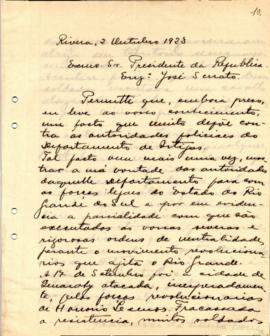 10.
Rivera, 2 Outubro 1923
Exmo. Sr. Presidente da Republica
Engº José Serrato.
Permitta que, embora preso,
eu leve ao vosso conhecimento,
um facto que muito depõe con-
tra as autoridades policiaes do
Departamento de Artigas.
Tal facto vem mais uma vez, mos-
trar a má vontade das autoridades
daquelle Departamento para com
as forças do Estado do Rio
Grande do Sul e por em eviden-
cia a parcialidade com que são
executadas as vossas severas e
rigorosas ordens de neutralidade,
perante o movimento revoluciona-
rio que agita o Rio Grande.
A 17 de Setembro foi a cidade de
Quarahy atacada, inesperadamen-
te, pelas forças revolucionarias
de Honorio Lemos. Fracassada
a resistencia, muitos soldados